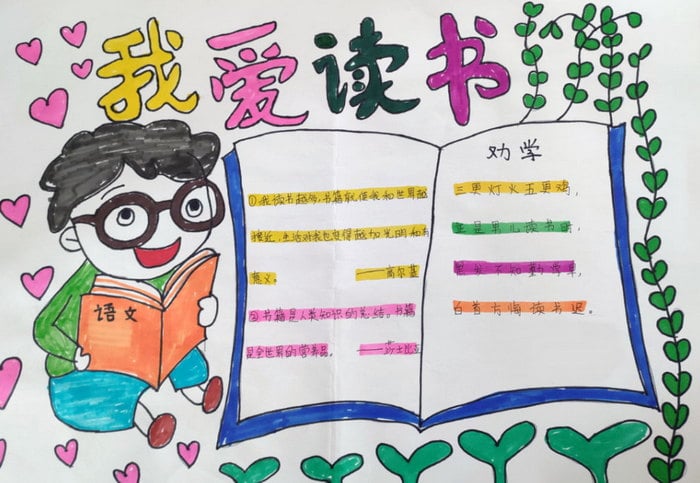 我爱读书
①我读书越多，书籍就使我和世界越
接近，生活对我也变得越加光明和有
意义。 ——高尔基
②书籍是人类知识的总结。书籍
是全世界的营养品。 ——莎士比亚
劝学
三更灯火五更鸡，
正是男儿读书时，
黑发不知勤学早，
白首方悔读书迟。
语文